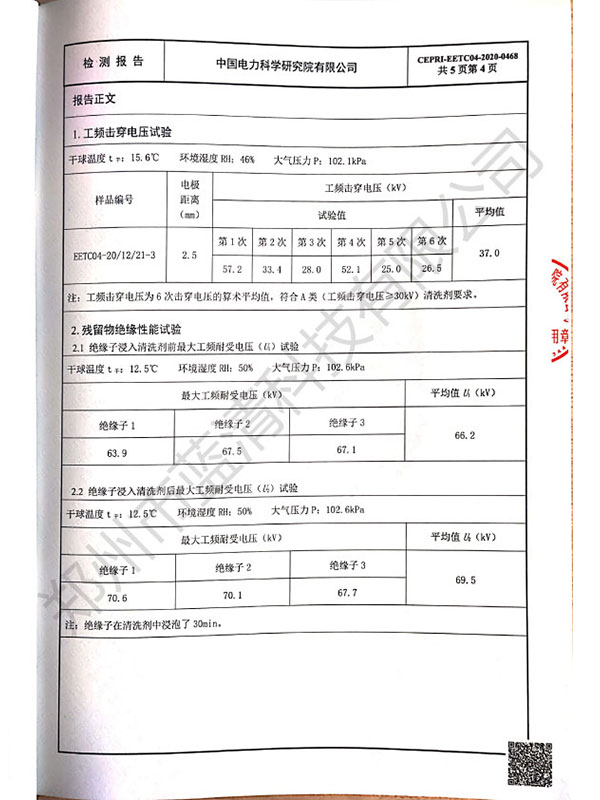 检测报告
中国电力科学研究院有限公司
CEPRI-EETC04-2020-0468
共 5 页第 4 页
报告正文
1. 工频击穿电压试验
干球温度 t干: 15.6℃ 环境湿度 RH: 46% 大气压力 P: 102.1kPa
样品编号
电极
距离
(mm)
工频击穿电压(kV)
试验值
平均值
第 1 次 第 2 次 第 3 次 第 4 次 第 5 次 第 6 次
EETC04-20/12/21-3 2.5 57.2 33.4 28.0 52.1 25.0 26.5 37.0
注: 工频击穿电压为 6 次击穿电压的算术平均值, 符合 A 类(工频击穿电压≥30kV)清洗剂要求。
2. 残留物绝缘性能试验
2.1 绝缘子浸入清洗剂前最大工频耐受电压(U1)试验
干球温度 t干: 12.5℃ 环境湿度 RH: 50% 大气压力 P: 102.6kPa
最大工频耐受电压(kV) 平均值 U1(kV)
绝缘子 1 绝缘子 2 绝缘子 3
63.9 67.5 67.1 66.2
2.2 绝缘子浸入清洗剂后最大工频耐受电压(U2)试验
干球温度 t干: 12.5℃ 环境湿度 RH: 50% 大气压力 P: 102.6kPa
最大工频耐受电压(kV) 平均值 U2(kV)
绝缘子 1 绝缘子 2 绝缘子 3
70.6 70.1 67.7 69.5
注: 绝缘子在清洗剂中浸泡了 30min。
郑州市蓝清科技有限公司
院有
用章